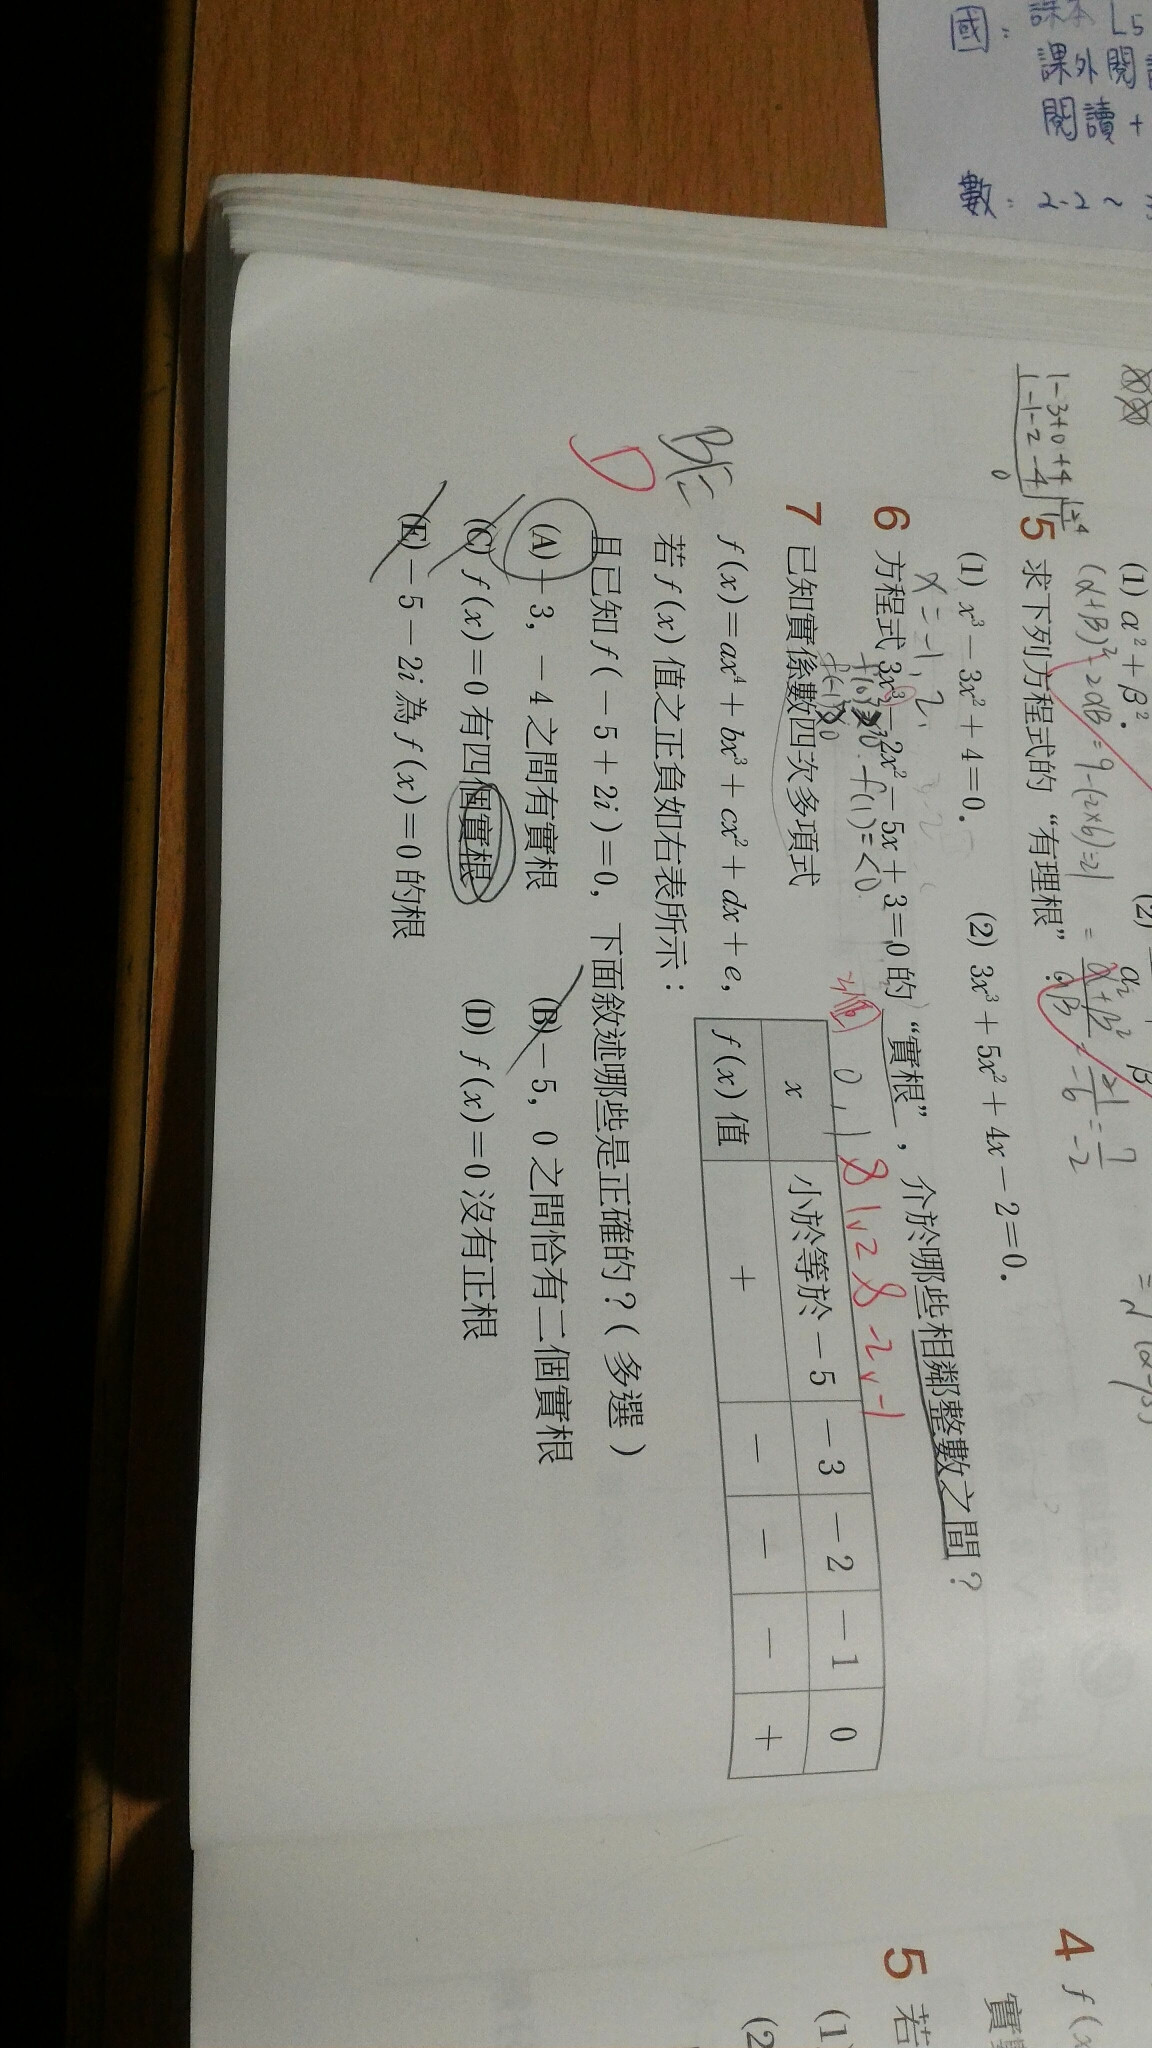 國：課本 L5
課外閱
閱讀 +
數：2-2 ~
(1) α² + β².
(2)
(α+β)² - 2αβ = 9 - (2×6) = 21
1 - 3 + 0 + 4
- 1
0
5 求下列方程式的“有理根”：
(1) x³ - 3x² + 4 = 0.
(2) 3x³ + 5x² + 4x - 2 = 0.
x = -1, 2
6 方程式 3x³ - 2x² - 5x + 3 = 0 的“實根”, 介於哪些相鄰整數之間？
f(1) = < 0
0, 1 & 1, 2 & -2, -1
7 已知實係數四次多項式
f(x) = ax⁴ + bx³ + cx² + dx + e,
若 f(x) 值之正負如右表所示：
x 小於等於 -5 -3 -2 -1 0
f(x) 值 + - - - +
且已知 f(-5 + 2i) = 0, 下面敘述哪些是正確的？(多選)
(A) -3, -4 之間有實根
(B) -5, 0 之間恰有二個實根
(C) f(x) = 0 有四個實根
(D) f(x) = 0 沒有正根
(E) -5 - 2i 為 f(x) = 0 的根
BE
D
4 f(x
實
5 若
(1)
(2